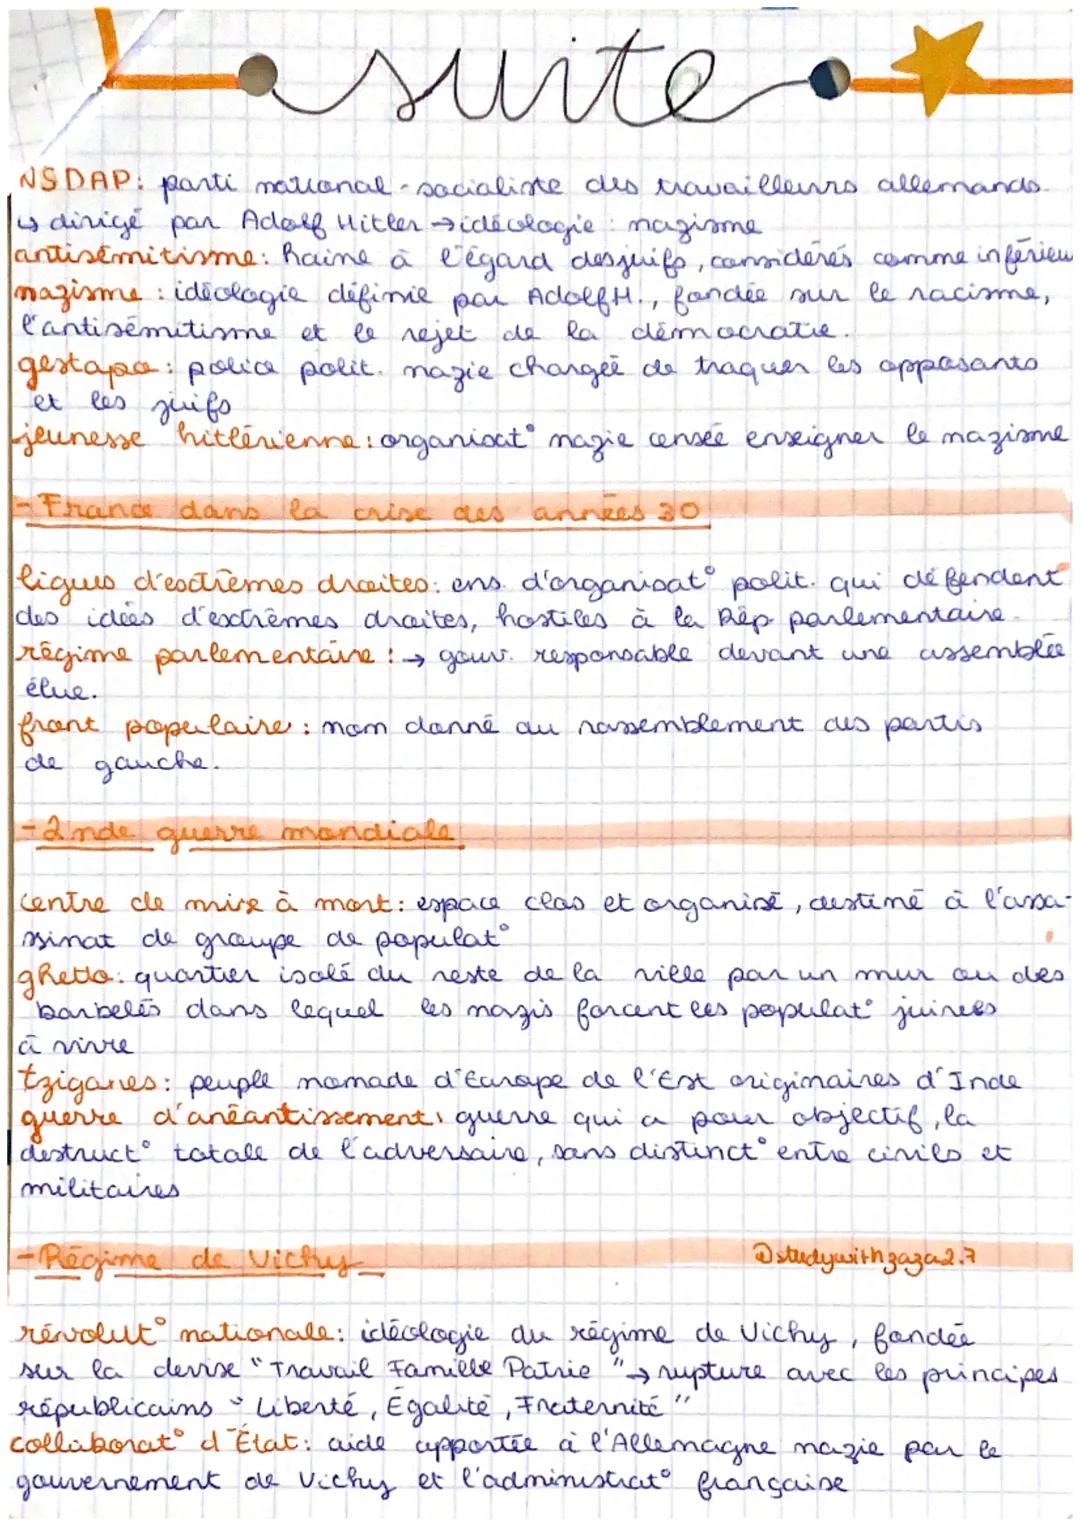 suite
NSDAP: parti national-socialiste des travailleurs allemands.
↳ dirigé par Adolf Hitler → idéologie : nazisme
antisémitisme: haine à l'égard des juifs, considérés comme inférieu
nazisme : idéologie définie par Adolf H., fondée sur le racisme,
l'antisémitisme et le rejet de la démocratie.
gestapo : police polit. nazie chargée de traquer les opposants
et les juifs
jeunesse hitlérienne : organisat° nazie censée enseigner le nazisme
- France dans la crise des années 30
ligues d'extrêmes droites: ens. d'organisat° polit. qui défendent
des idées d'extrêmes droites, hostiles à la Rép parlementaire.
régime parlementaire : → gouv. responsable devant une assemblée
élue.
front populaire : nom donné au rassemblement des partis
de gauche.
- 2nde guerre mondiale
centre de mise à mort : espace clos et organisé, destiné à l'assa-
ssinat de groupe de populat°
ghetto: quartier isolé du reste de la ville par un mur ou des
barbelés dans lequel les nazis forcent les populat° juives
à vivre
tziganes: peuple nomade d'Europe de l'Est originaires d'Inde
guerre d'anéantissement: guerre qui a pour objectif, la
destruct° totale de l'adversaire, sans distinct° entre civils et
militaires
- Régime de Vichy @studywithzaza2.7
révolut° nationale: idéologie du régime de Vichy, fondée
sur la devise "Travail Famille Patrie" → rupture avec les principes
républicains "Liberté, Égalité, Fraternité"
collaborat° d'État: aide apportée à l'Allemagne nazie par le
gouvernement de Vichy et l'administrat° française